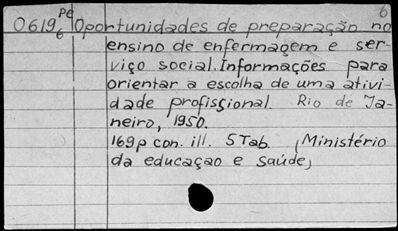 6
Pe
0619 6 Oportunidades de preparação no
ensino de enfermagem e ser-
viço social. Informações para
orientar a escolha de uma ativi-
dade profissional. Rio de Ja-
neiro, 1950.
169p con. ill. 5 Tab. (Ministério
da educaçao e saúde)